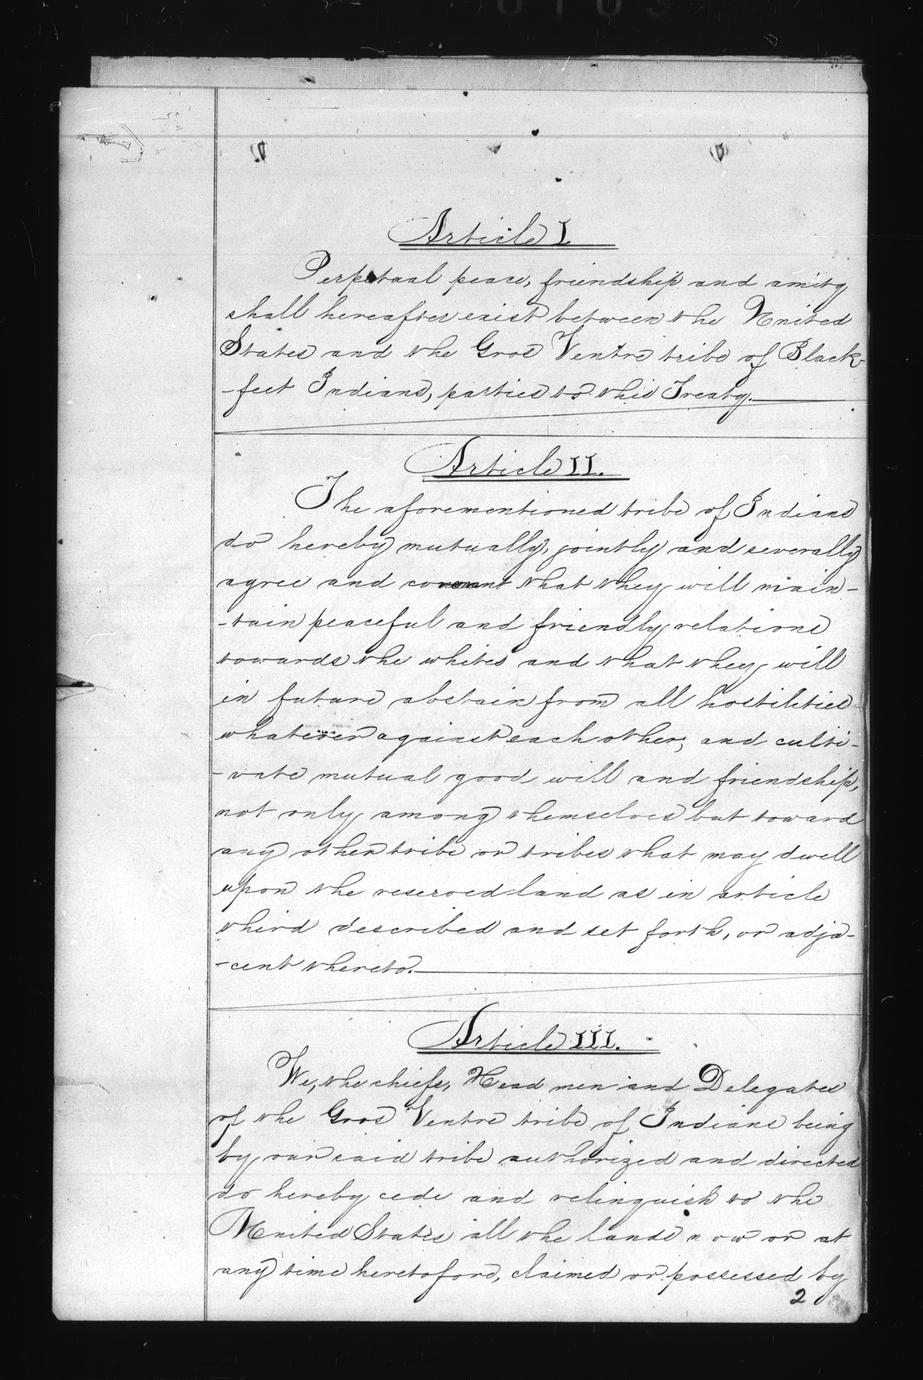 Article I
Perpetual peace, friendship and amity
shall hereafter exist between the United
States and the Gros Ventre tribe of Black-
-feet Indians, parties to this Treaty.
Article II.
The aforementioned tribe of Indians
do hereby mutually, jointly and severally
agree and covenant that they will main-
-tain peaceful and friendly relations
towards the whites and that they will
in future abstain from all hostilities
whatever against each other, and culti-
-vate mutual good will and friendship,
not only among themselves but toward
any other tribe or tribes that may dwell
upon the reserved land as in article
third described and set forth, or adja-
-cent thereto.
Article III.
We, the chiefs, Head men and Delegates
of the Gros Ventre tribe of Indians being
by our said tribe authorized and directed
do hereby cede and relinquish to the
United States all the lands now or at
any time heretofore, claimed or possessed by
2